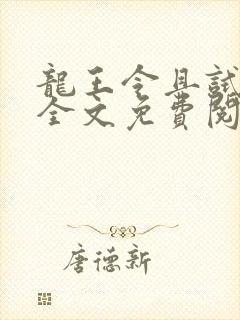 龍王令且試
全文免費閱
唐德新